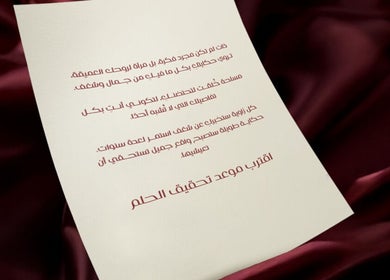 ذات لم تكن مجرد فكرة، بل مرآة لروحك العميقة،
تروي حكايتك بكل ما فيك من جمال وشغف.
مساحة خُلقت لتحتضنك، لتكوني أنتِ بكل
تفاصيلك التي لا تُشبه أحدًا.
كل زاوية ستخبرك عن شغف استمر لعدة سنوات،
حكاية طويلة ستصبح واقع جميل تستحقي أن
تعيشيها.
اقترب موعد تحقيق الحلم